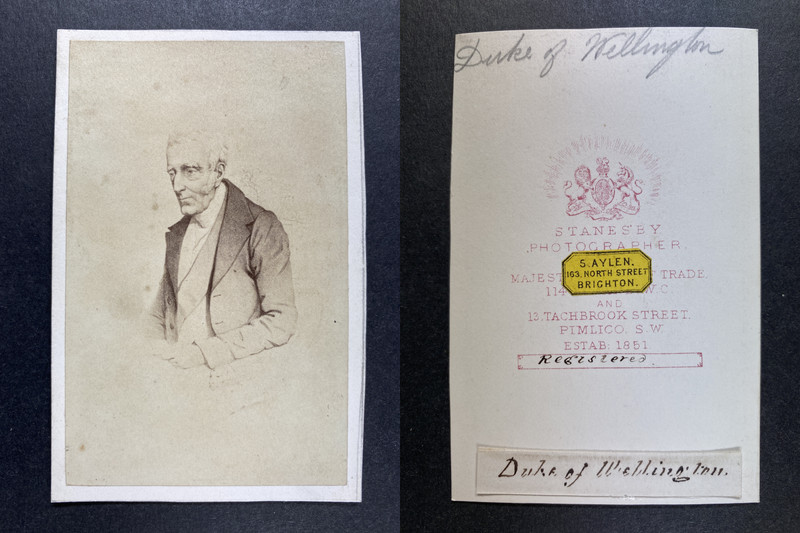 Duke of Wellington
STANESBY
PHOTOGRAPHER
S. AYLEN.
163, NORTH STREET
BRIGHTON.
MAJEST TRADE.
114 W.C.
AND
13, TACHBROOK STREET.
PIMLICO. S.W.
ESTAB: 1851
Registered
Duke of Wellington.